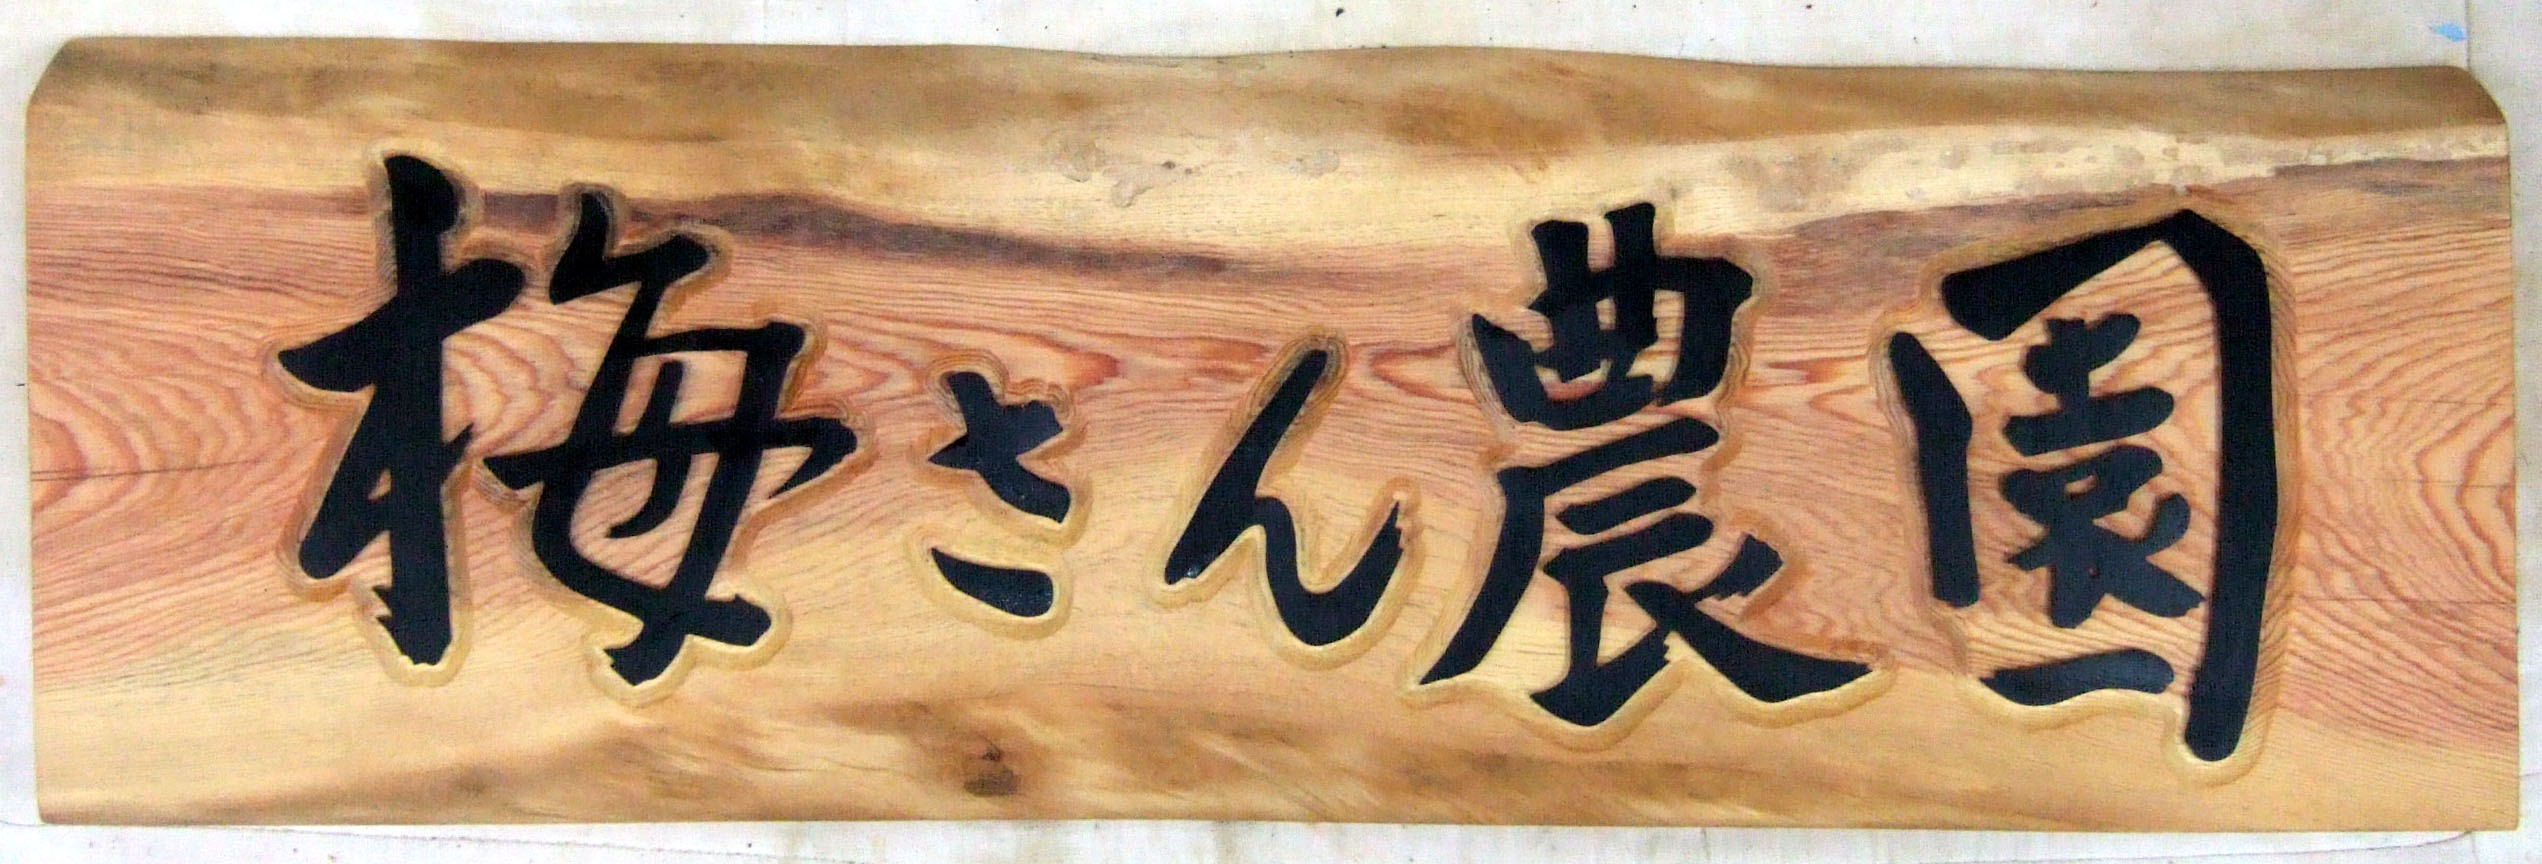 梅さん農園